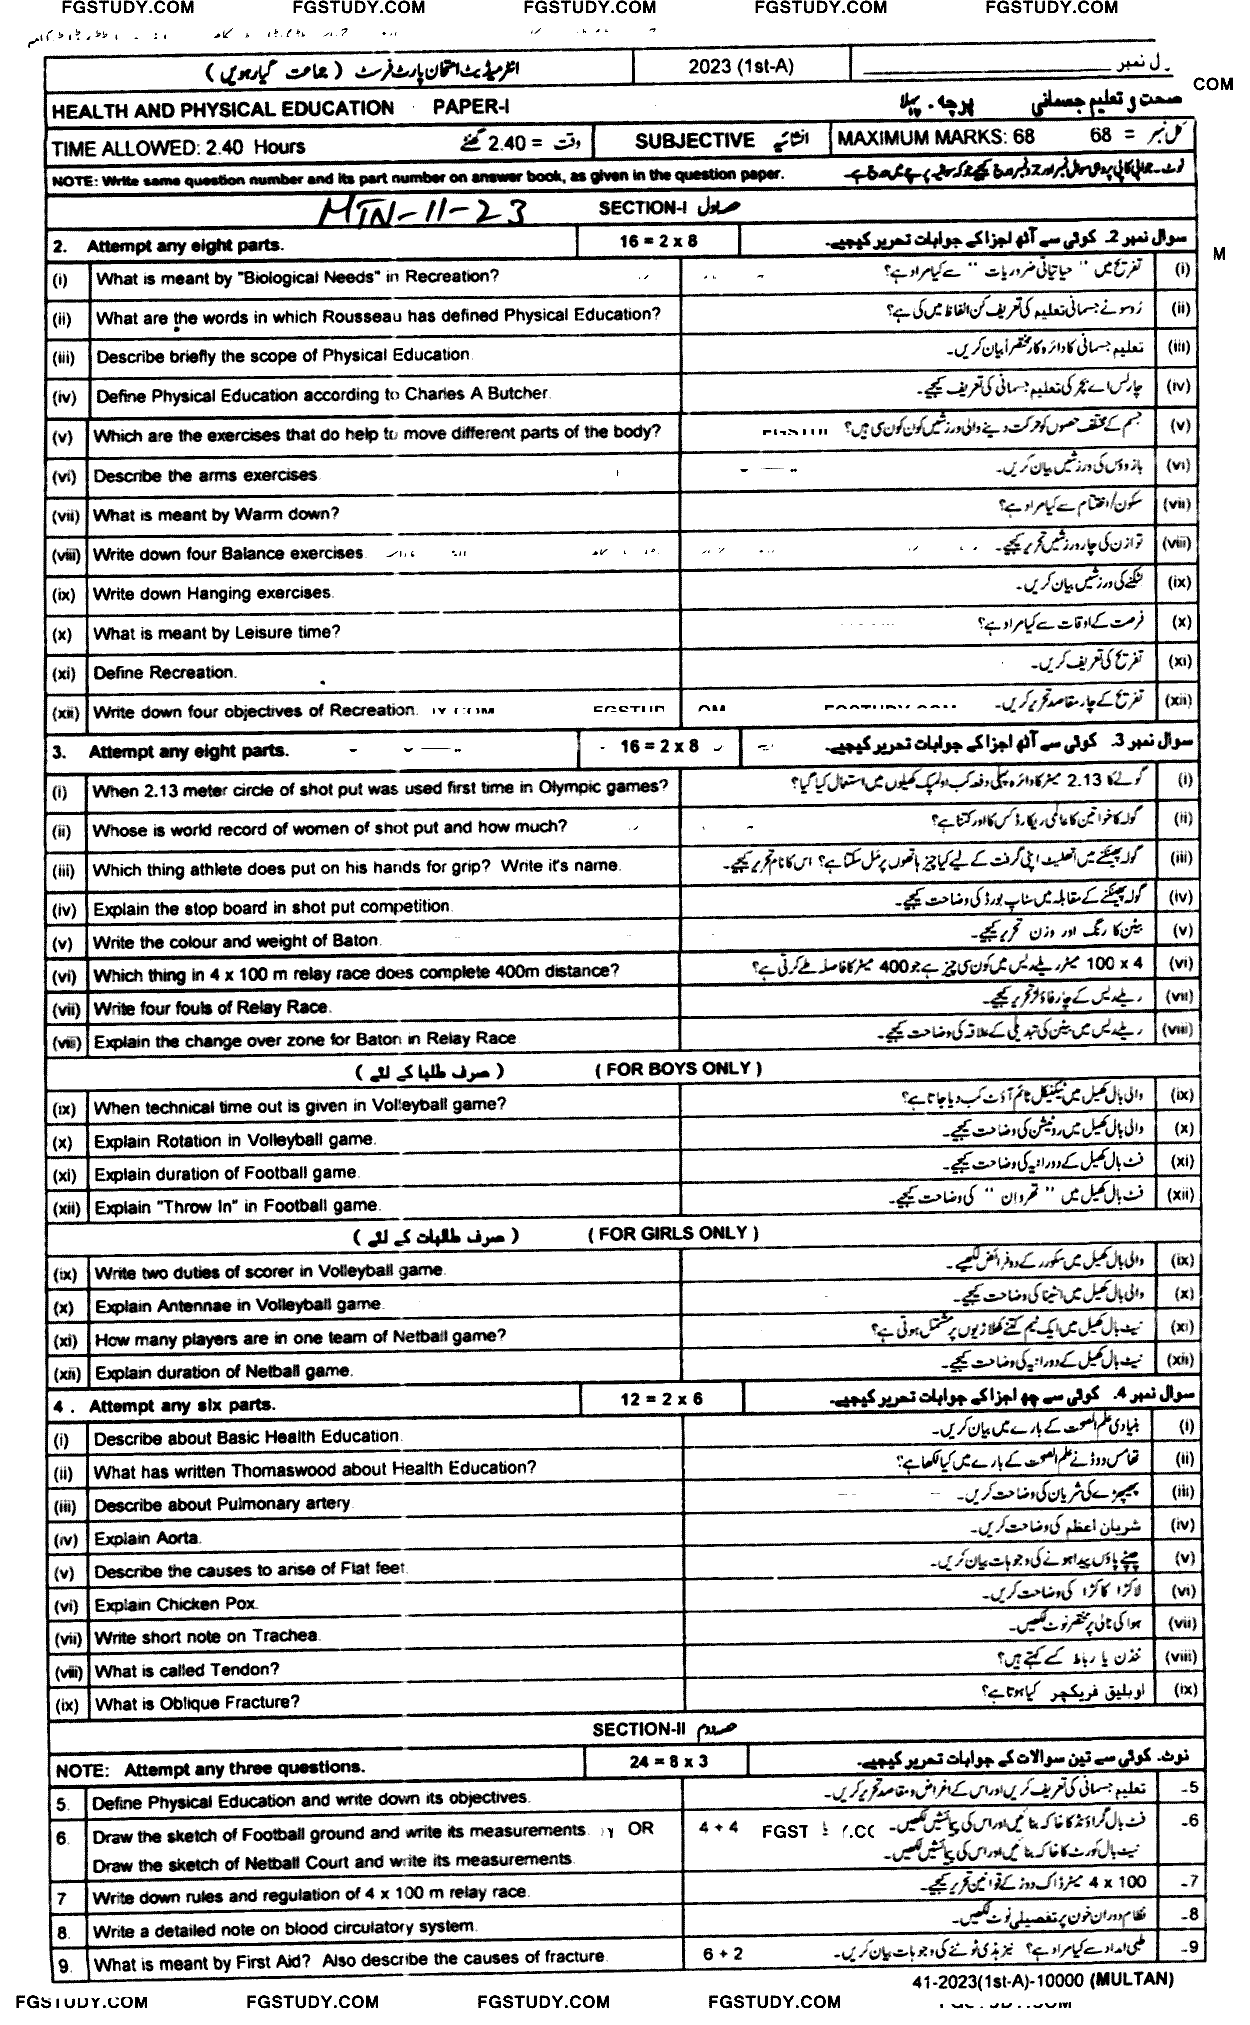 FGSTUDY.COM FGSTUDY.COM FGSTUDY.COM FGSTUDY.COM FGSTUDY.COM
انٹرمیڈیٹ امتحان پارٹ فرسٹ ( جماعت گیارہویں ) 2023 (1st-A) رول نمبر
COM
HEALTH AND PHYSICAL EDUCATION PAPER-I پرچہ ۔ پہلا صحت و تعلیم جسمانی
TIME ALLOWED: 2.40 Hours وقت = 2.40 گھنٹے SUBJECTIVE انشائیہ MAXIMUM MARKS: 68 کل نمبر = 68
NOTE: Write same question number and its part number on answer book, as given in the question paper.
MTN-11-23 SECTION-I حصہ اول
2. Attempt any eight parts. 16 = 2 x 8 سوال نمبر 2۔ کوئی سے آٹھ اجزا کے جوابات تحریر کیجیے۔
M
(i) What is meant by "Biological Needs" in Recreation? تفریح میں " حیاتیاتی ضروریات " سے کیا مراد ہے؟ (i)
(ii) What are the words in which Rousseau has defined Physical Education? رُوسو نے جسمانی تعلیم کی تعریف کن الفاظ میں کی ہے؟ (ii)
(iii) Describe briefly the scope of Physical Education. تعلیم جسمانی کا دائرہ کار مختصراً بیان کریں۔ (iii)
(iv) Define Physical Education according to Charles A Butcher. چارلس اے بچر کی تعلیم جسمانی کی تعریف کیجیے۔ (iv)
(v) Which are the exercises that do help to move different parts of the body? جسم کے مختلف حصوں کو حرکت دینے والی ورزشیں کون کون سی ہیں؟ (v)
(vi) Describe the arms exercises. بازوؤں کی ورزشیں بیان کریں۔ (vi)
(vii) What is meant by Warm down? سکون/اختتام سے کیا مراد ہے؟ (vii)
(viii) Write down four Balance exercises. توازن کی چار ورزشیں تحریر کیجیے۔ (viii)
(ix) Write down Hanging exercises. لٹکنے کی ورزشیں بیان کریں۔ (ix)
(x) What is meant by Leisure time? فرصت کے اوقات سے کیا مراد ہے؟ (x)
(xi) Define Recreation. تفریح کی تعریف کریں۔ (xi)
(xii) Write down four objectives of Recreation. تفریح کے چار مقاصد تحریر کریں۔ (xii)
3. Attempt any eight parts. 16 = 2 x 8 سوال نمبر 3۔ کوئی سے آٹھ اجزا کے جوابات تحریر کیجیے۔
(i) When 2.13 meter circle of shot put was used first time in Olympic games? گولے کا 2.13 میٹر کا دائرہ پہلی دفعہ کب اولمپک کھیلوں میں استعمال کیا گیا؟ (i)
(ii) Whose is world record of women of shot put and how much? گولہ کا خواتین کا عالمی ریکارڈ کس کا اور کتنا ہے؟ (ii)
(iii) Which thing athlete does put on his hands for grip? Write it's name. گولہ پھینکنے میں اتھلیٹ اپنی گرفت کے لیے کیا چیز ہاتھوں پر مَل سکتا ہے؟ اس کا نام تحریر کیجیے۔ (iii)
(iv) Explain the stop board in shot put competition. گولہ پھینکنے کے مقابلہ میں سٹاپ بورڈ کی وضاحت کیجیے۔ (iv)
(v) Write the colour and weight of Baton. بیٹن کا رنگ اور وزن تحریر کیجیے۔ (v)
(vi) Which thing in 4 x 100 m relay race does complete 400m distance? 4 x 100 میٹر ریلے ریس میں کون سی چیز ہے جو 400 میٹر کا فاصلہ طے کرتی ہے؟ (vi)
(vii) Write four fouls of Relay Race. ریلے ریس کے چار فاؤلز تحریر کیجیے۔ (vii)
(viii) Explain the change over zone for Baton in Relay Race. ریلے ریس میں بیٹن کی تبدیلی کے علاقہ کی وضاحت کیجیے۔ (viii)
( صرف طلبا کے لئے ) ( FOR BOYS ONLY )
(ix) When technical time out is given in Volleyball game? والی بال کھیل میں ٹیکنیکل ٹائم آؤٹ کب دیا جاتا ہے؟ (ix)
(x) Explain Rotation in Volleyball game. والی بال کھیل میں روٹیشن کی وضاحت کیجیے۔ (x)
(xi) Explain duration of Football game. فٹ بال کھیل کے دورانیہ کی وضاحت کیجیے۔ (xi)
(xii) Explain "Throw In" in Football game. فٹ بال کھیل میں " تھرو ان " کی وضاحت کیجیے۔ (xii)
( صرف طالبات کے لئے ) ( FOR GIRLS ONLY )
(ix) Write two duties of scorer in Volleyball game. والی بال کھیل میں سکورر کے دو فرائض لکھیے۔ (ix)
(x) Explain Antennae in Volleyball game. والی بال کھیل میں انٹینا کی وضاحت کیجیے۔ (x)
(xi) How many players are in one team of Netball game? نیٹ بال کھیل میں ایک ٹیم کتنے کھلاڑیوں پر مشتمل ہوتی ہے؟ (xi)
(xii) Explain duration of Netball game. نیٹ بال کھیل کے دورانیہ کی وضاحت کیجیے۔ (xii)
4 . Attempt any six parts. 12 = 2 x 6 سوال نمبر 4۔ کوئی سے چھ اجزا کے جوابات تحریر کیجیے۔
(i) Describe about Basic Health Education. بنیادی علم الصحت کے بارے میں بیان کریں۔ (i)
(ii) What has written Thomaswood about Health Education? تھامس ووڈ نے علم الصحت کے بارے میں کیا لکھا ہے؟ (ii)
(iii) Describe about Pulmonary artery. پھیپھڑے کی شریان کی وضاحت کریں۔ (iii)
(iv) Explain Aorta. شریان اعظم کی وضاحت کریں۔ (iv)
(v) Describe the causes to arise of Flat feet. چپٹے پاؤں پیدا ہونے کی وجوہات بیان کریں۔ (v)
(vi) Explain Chicken Pox. لاکڑا کاکڑا کی وضاحت کریں۔ (vi)
(vii) Write short note on Trachea. ہوا کی نالی پر مختصر نوٹ لکھیں۔ (vii)
(viii) What is called Tendon? یا رباط کسے کہتے ہیں؟ (viii)
(ix) What is Oblique Fracture? اوبلیق فریکچر کیا ہوتا ہے؟ (ix)
SECTION-II حصہ دوم
NOTE: Attempt any three questions. 24 = 8 x 3 نوٹ۔ کوئی سے تین سوالات کے جوابات تحریر کیجیے۔
5. Define Physical Education and write down its objectives. تعلیم جسمانی کی تعریف کریں اور اس کے اغراض و مقاصد تحریر کریں۔ 5۔
6. Draw the sketch of Football ground and write its measurements. OR 4 + 4 فٹ بال گراؤنڈ کا خاکہ بنائیں اور اس کی پیمائشیں لکھیں۔ 6۔
Draw the sketch of Netball Court and write its measurements. نیٹ بال کورٹ کا خاکہ بنائیں اور اس کی پیمائشیں لکھیں۔
7 Write down rules and regulation of 4 x 100 m relay race. 4 x 100 میٹر ڈاک دوڑ کے قوانین تحریر کیجیے۔ 7۔
8. Write a detailed note on blood circulatory system. نظام دوران خون پر تفصیلی نوٹ لکھیں۔ 8۔
9. What is meant by First Aid? Also describe the causes of fracture. 6 + 2 طبی امداد سے کیا مراد ہے؟ نیز ہڈی ٹوٹنے کی وجوہات بیان کریں۔ 9۔
41-2023(1st-A)-10000 (MULTAN)
FGSTUDY.COM FGSTUDY.COM FGSTUDY.COM FGSTUDY.COM